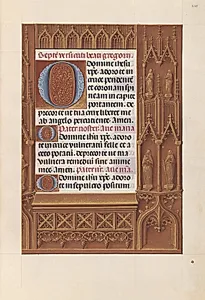 Septe versicuti beati gregorii.
O Domine ihesu
xpe adoro te in
cruce pendente
et coronam spi
neam in capite
portantem. de
precor te ut tua crux liberet me
ab angelo percutiente. Amen.
Pater noster. Ave maria
O Domine ihu xpe adoro
te in cruce vulneratu felle et a
ceto potatu. deprecor te ut tua
vulnera remediu sint anime
mee. Amen. Pater nr. Ave ma.
O Domine ihu xpe adoro
te in sepulcro positum